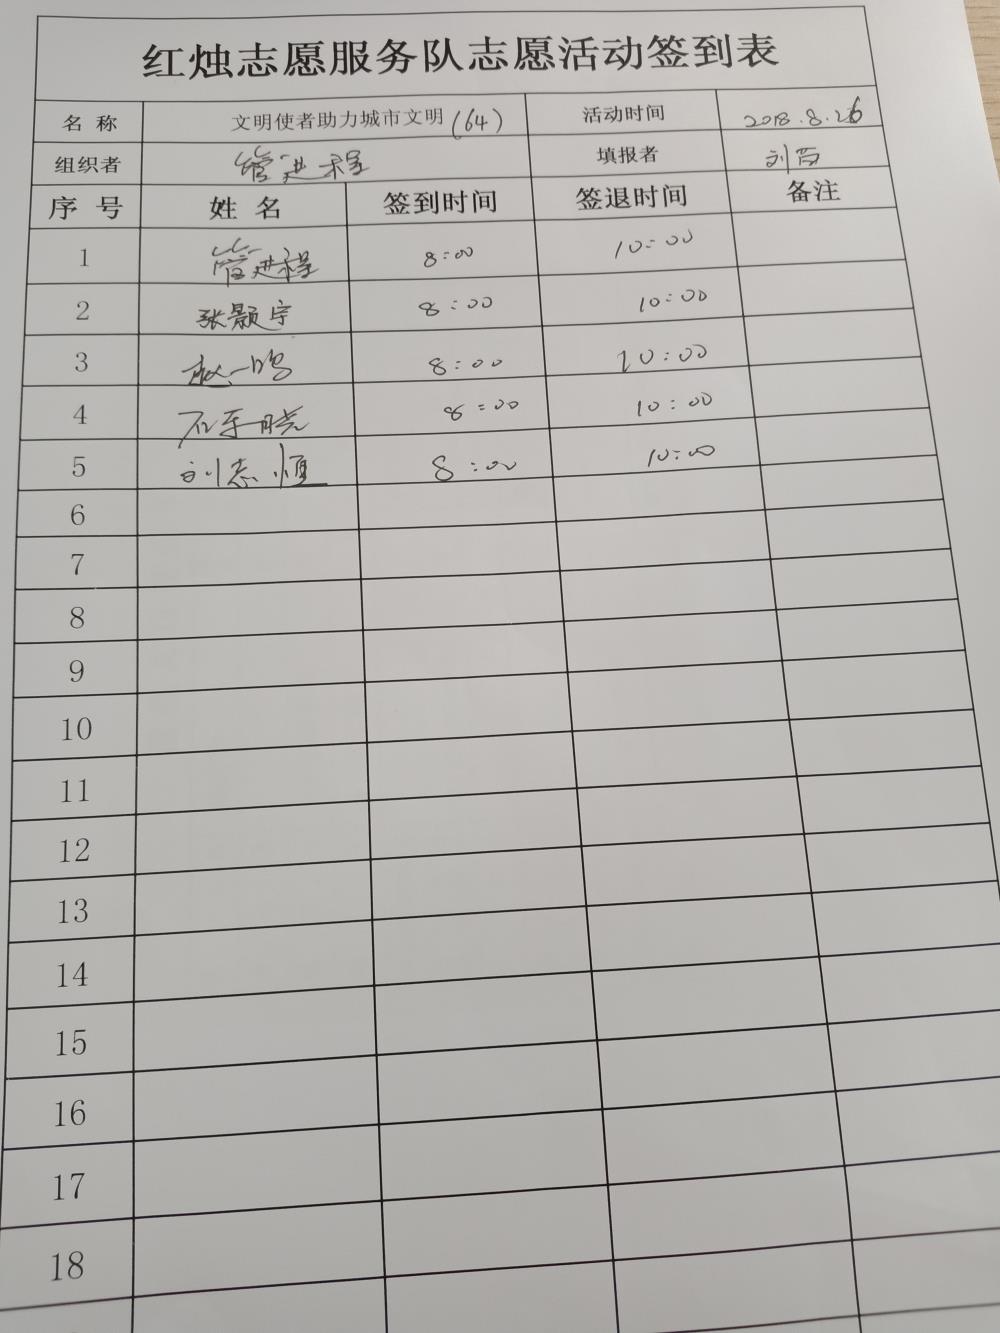 红烛志愿服务队志愿活动签到表
名 称 文明使者助力城市文明(64) 活动时间 2018.8.26
组织者 管进程 填报者 刘
序 号 姓 名 签到时间 签退时间 备注
1 管进程 8:00 10:00
2 张颢宇 8:00 10:00
3 赵一鸣 8:00 10:00
4 石 晓 8:00 10:00
5 刘志恒 8:00 10:00
6
7
8
9
10
11
12
13
14
15
16
17
18